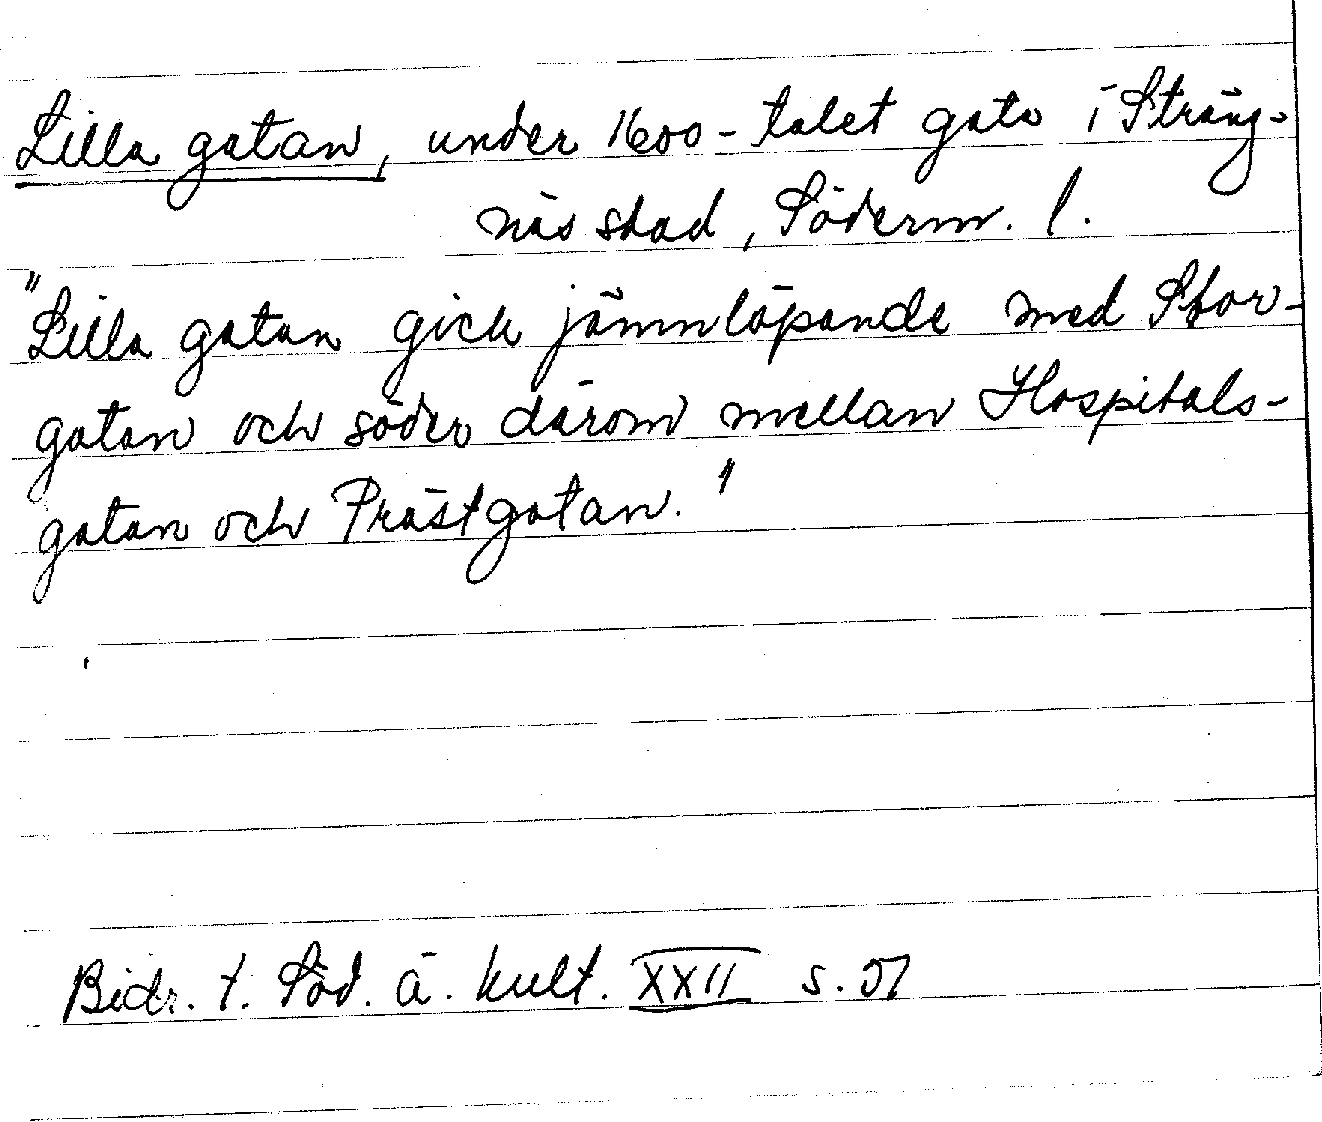 Lilla gatan, under 1600-talet gata i Sträng-
näs stad, Söderm. l.
"Lilla gatan gick jämnlöpande med Stor-
gatan och söder därom mellan Hospitals-
gatan och Prästgatan."
Bidr. t. Söd. ä. kult. XXII s. 57